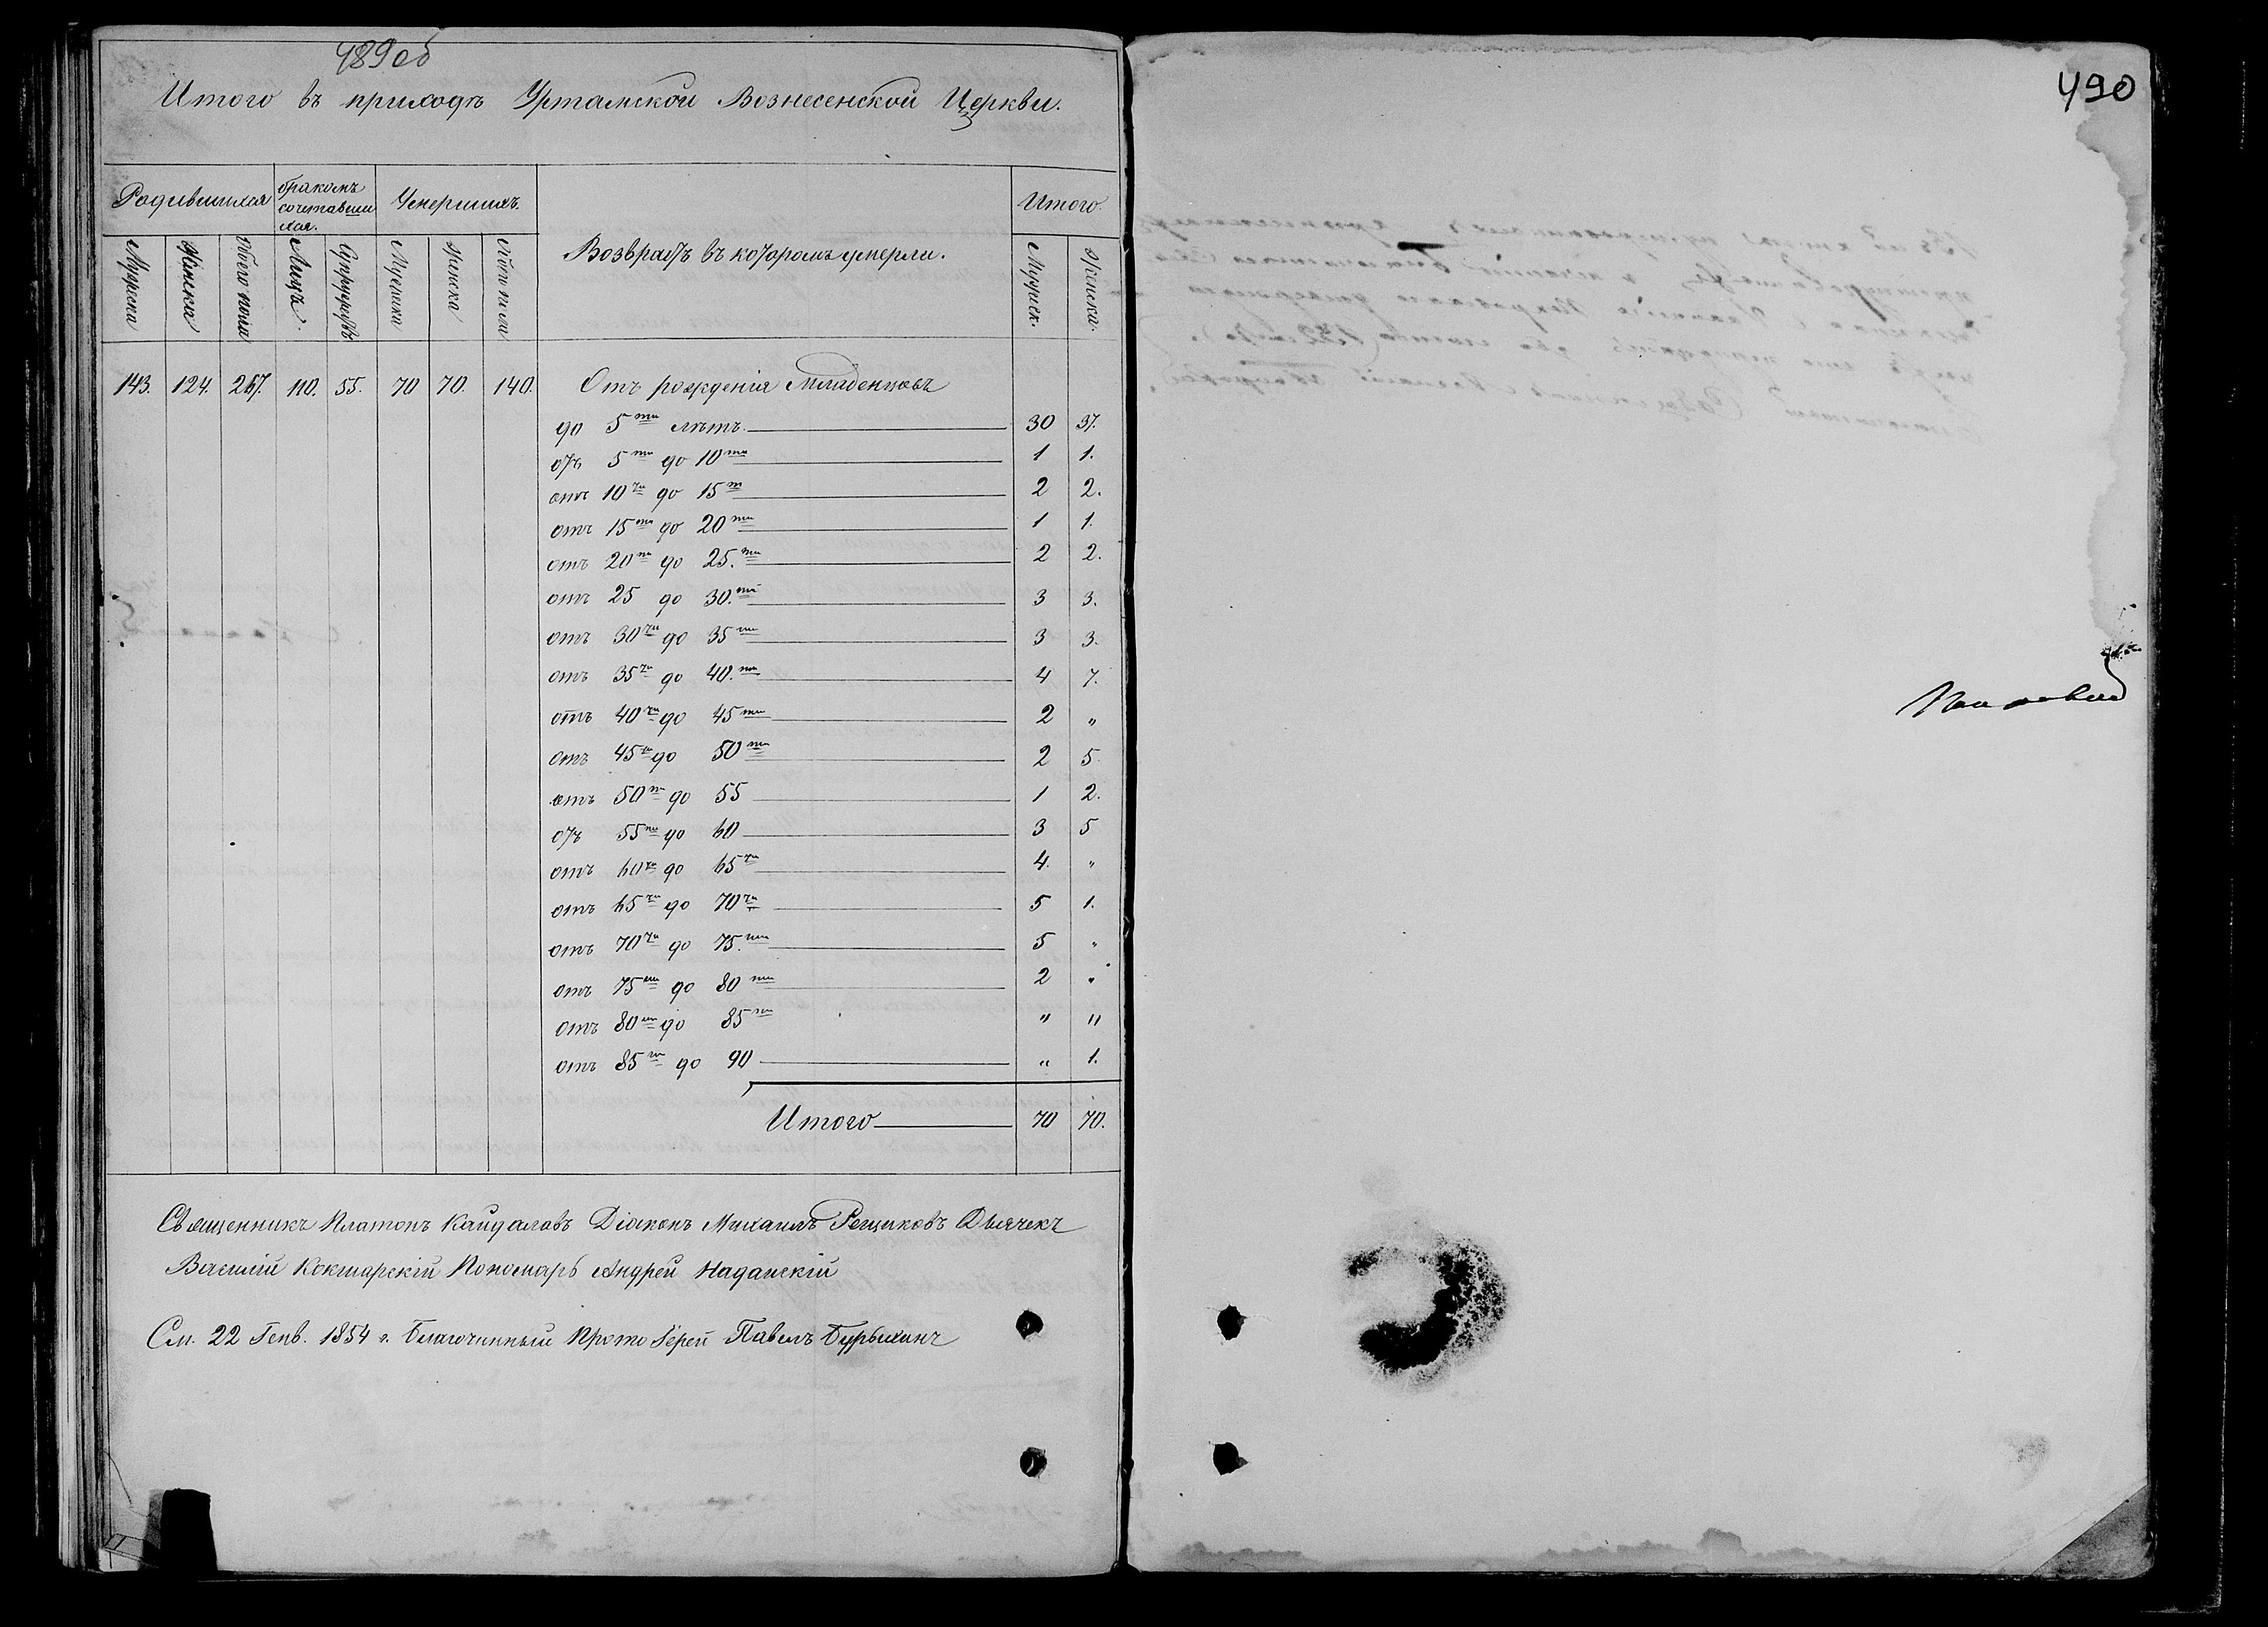 489об
Итого въ приходѣ Уртамской Вознесенской Церкви.
Родившихся
бракомъ сочетавшихся.
Умершихъ.
Возврастъ въ которомъ умерли.
Итого.
Мужеска
Женска
Обоего пола
Лицъ.
Супружествъ
Мужеска
Женска
Обоего пола
Мужеск.
Женска.
143. 124. 267. 110. 55. 70 70. 140. Отъ рожденія Младенцовъ
до 5ти лѣтъ. 30 37.
отъ 5ти до 10ти 1 1.
отъ 10ти до 15т 2 2.
отъ 15ти до 20ти 1 1.
отъ 20ти до 25.ти 2 2.
отъ 25 до 30.ти 3 3.
отъ 30ти до 35ти 3 3.
отъ 35ти до 40.ти 4 7.
отъ 40ти до 45ти 2 "
отъ 45ти до 50ти 2 5.
отъ 50ти до 55 1 2.
отъ 55ти до 60 3 5
отъ 60ти до 65ти 4. "
отъ 65ти до 70ти 5 1.
отъ 70ти до 75.ти 5 "
отъ 75ти до 80ти 2 "
отъ 80ти до 85ти " "
отъ 85ти до 90 " 1.
Итого 70 70.
Священникъ Платонъ Кайдаловъ Діаконъ Михаилъ Рещиковъ Дьячекъ
Василій Кокшарскій Пономарь Андрей Наданскій
См. 22 Генв. 1854 г. Благочинный Протоіерей Павелъ Бурыхинъ
490